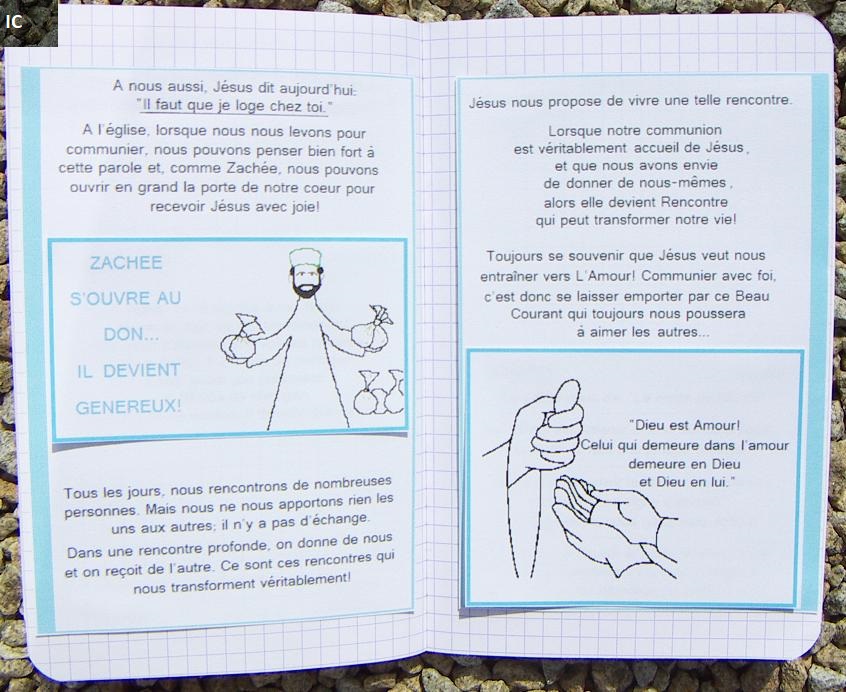 IC
A nous aussi, Jésus dit aujourd'hui:
"Il faut que je loge chez toi."
A l'église, lorsque nous nous levons pour
communier, nous pouvons penser bien fort à
cette parole et, comme Zachée, nous pouvons
ouvrir en grand la porte de notre coeur pour
recevoir Jésus avec joie!
ZACHEE
S'OUVRE AU
DON...
IL DEVIENT
GENEREUX!
Tous les jours, nous rencontrons de nombreuses
personnes. Mais nous ne nous apportons rien les
uns aux autres; il n'y a pas d'échange.
Dans une rencontre profonde, on donne de nous
et on reçoit de l'autre. Ce sont ces rencontres qui
nous transforment véritablement!
Jésus nous propose de vivre une telle rencontre.
Lorsque notre communion
est véritablement accueil de Jésus,
et que nous avons envie
de donner de nous-mêmes,
alors elle devient Rencontre
qui peut transformer notre vie!
Toujours se souvenir que Jésus veut nous
entraîner vers L'Amour! Communier avec foi,
c'est donc se laisser emporter par ce Beau
Courant qui toujours nous poussera
à aimer les autres...
"Dieu est Amour!
Celui qui demeure dans l'amour
demeure en Dieu
et Dieu en lui."